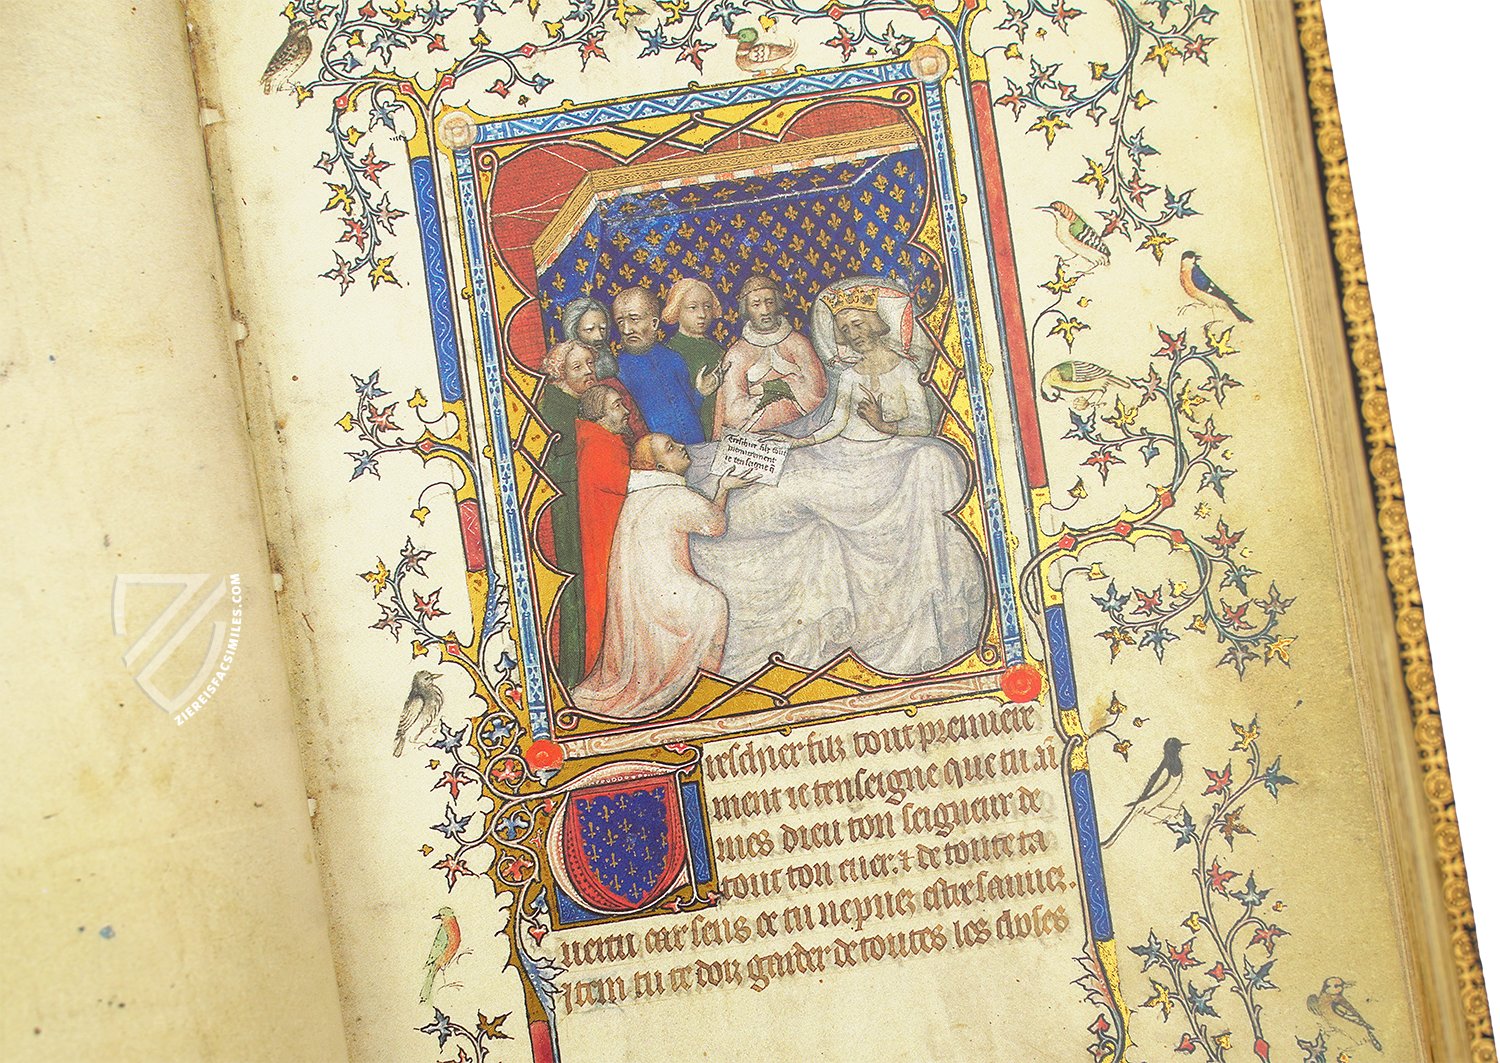 Treschier filz tout
premierement
ie tenseigne q̃
Treschier filz tout premiere
ment ie tenseigne que tu ai
mes dieu ton seigneur de
tout ton cuer. ⁊ de toute ta
uertu car sens ce tu ne puez estre sauuez.
Item tu te doiz garder de toutes les choses
ZIEREISFACSIMILES.COM